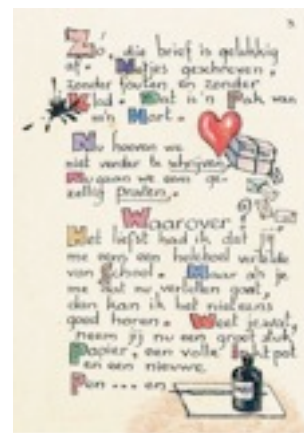 3
Zió, die brief is gelukkig
af. Netjes geschreven,
zonder fouten en zonder
Klad. Dat is 'n Pak van
m'n Hart.
Nu hoeven we
niet verder te schrijven
Nu gaan we eens ge-
zellig praten.
Waarover?
Het liefst had ik dat jij
me eens een heleboel vertelde
van School. Maar als je
me dat nu vertellen gaat,
dan kan ik het niet eens
goed horen. Weet je wat,
neem jij nu een groot stuk
Papier, een volle Inktpot
en een nieuwe
Pen... en